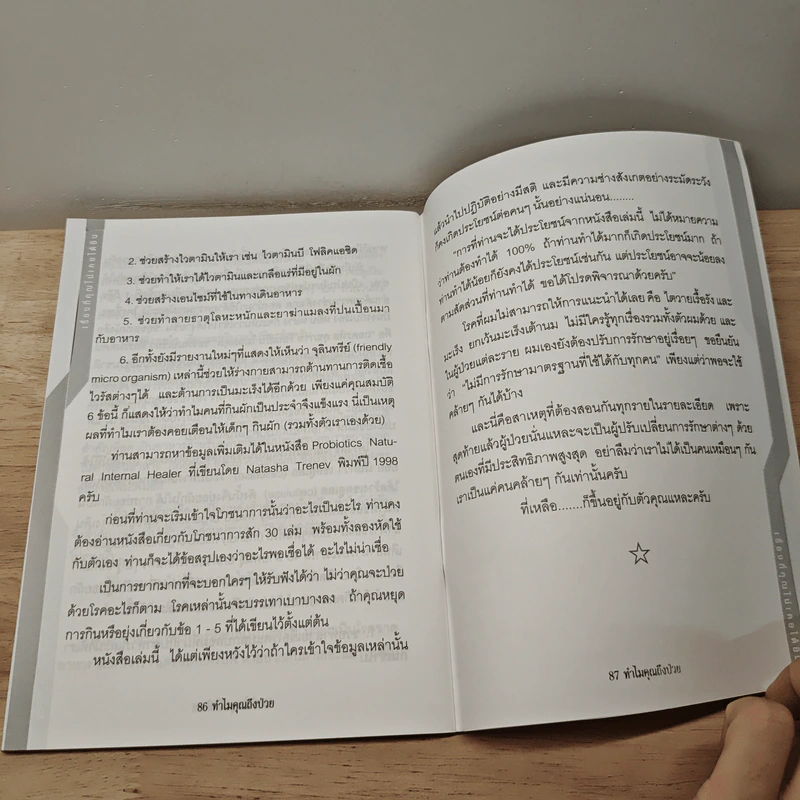 เรื่องที่คุณไม่เคยได้ยิน
2. ช่วยสร้างไวตามินให้เรา เช่น ไวตามินบี โฟลิคแอซิด
3. ช่วยทำให้เราได้ไวตามินและเกลือแร่ที่มีอยู่ในผัก
4. ช่วยสร้างเอนไซม์ที่ใช้ในทางเดินอาหาร
5. ช่วยทำลายธาตุโลหะหนักและยาฆ่าแมลงที่ปนเปื้อนมา
กับอาหาร
6. อีกทั้งยังมีรายงานใหม่ๆที่แสดงให้เห็นว่า จุลินทรีย์ (friendly
micro organism) เหล่านี้ช่วยให้ร่างกายสามารถต้านทานการติดเชื้อ
ไวรัสต่างๆได้ และต้านการเป็นมะเร็งได้อีกด้วย เพียงแค่คุณสมบัติ
6 ข้อนี้ ก็แสดงให้ว่าทำไมคนที่กินผักเป็นประจำจึงแข็งแรง นี่เป็นเหตุ
ผลที่ทำไมเราต้องคอยเตือนให้เด็กๆ กินผัก (รวมทั้งตัวเราเองด้วย)
ท่านสามารถหาข้อมูลเพิ่มเติมได้ในหนังสือ Probiotics Natu-
ral Internal Healer ที่เขียนโดย Natasha Trenev พิมพ์ปี 1998
ครับ
ก่อนที่ท่านจะเริ่มเข้าใจโภชนาการนั้นว่าอะไรเป็นอะไร ท่านคง
ต้องอ่านหนังสือเกี่ยวกับโภชนาการสัก 30 เล่ม พร้อมทั้งลองหัดใช้
กับตัวเอง ท่านก็จะได้ข้อสรุปเองว่าอะไรพอเชื่อได้ อะไรไม่น่าเชื่อ
เป็นการยากมากที่จะบอกใครๆ ให้รับฟังได้ว่า ไม่ว่าคุณจะป่วย
ด้วยโรคอะไรก็ตาม โรคเหล่านั้นจะบรรเทาเบาบางลง ถ้าคุณหยุด
การกินหรือยุ่งเกี่ยวกับข้อ 1 - 5 ที่ได้เขียนไว้ตั้งแต่ต้น
หนังสือเล่มนี้ ได้แต่เพียงหวังไว้ว่าถ้าใครเข้าใจข้อมูลเหล่านั้น
86 ทำไมคุณถึงป่วย
แล้วนำไปปฏิบัติอย่างมีสติ และมีความช่างสังเกตอย่างระมัดระวัง
ก็คงเกิดประโยชน์ต่อคนๆ นั้นอย่างแน่นอน........
"การที่ท่านจะได้ประโยชน์จากหนังสือเล่มนี้ ไม่ได้หมายความ
ว่าท่านต้องทำได้ 100% ถ้าท่านทำได้มากก็เกิดประโยชน์มาก ถ้า
ท่านทำได้น้อยก็ยังคงได้ประโยชน์เช่นกัน แต่ประโยชน์อาจจะน้อยลง
ตามสัดส่วนที่ท่านทำได้ ขอได้โปรดพิจารณาด้วยครับ"
โรคที่ผมไม่สามารถให้การแนะนำได้เลย คือ ไตวายเรื้อรัง และ
มะเร็ง ยกเว้นมะเร็งเต้านม ไม่มีใครรู้ทุกเรื่องรวมทั้งตัวผมด้วย และ
ในผู้ป่วยแต่ละราย ผมเองยังต้องปรับการรักษาอยู่เรื่อยๆ ขอยืนยัน
ว่า "ไม่มีการรักษามาตรฐานที่ใช้ได้กับทุกคน" เพียงแต่ว่าพอจะใช้
คล้ายๆ กันได้บ้าง
และนี่คือสาเหตุที่ต้องสอนกันทุกรายในรายละเอียด เพราะ
สุดท้ายแล้วผู้ป่วยนั่นแหละจะเป็นผู้ปรับเปลี่ยนการรักษาต่างๆ ด้วย
ตนเองที่มีประสิทธิภาพสูงสุด อย่าลืมว่าเราไม่ได้เป็นคนเหมือนๆ กัน
เราเป็นแค่คนคล้ายๆ กันเท่านั้นครับ
ที่เหลือ.......ก็ขึ้นอยู่กับตัวคุณแหละครับ
87 ทำไมคุณถึงป่วย